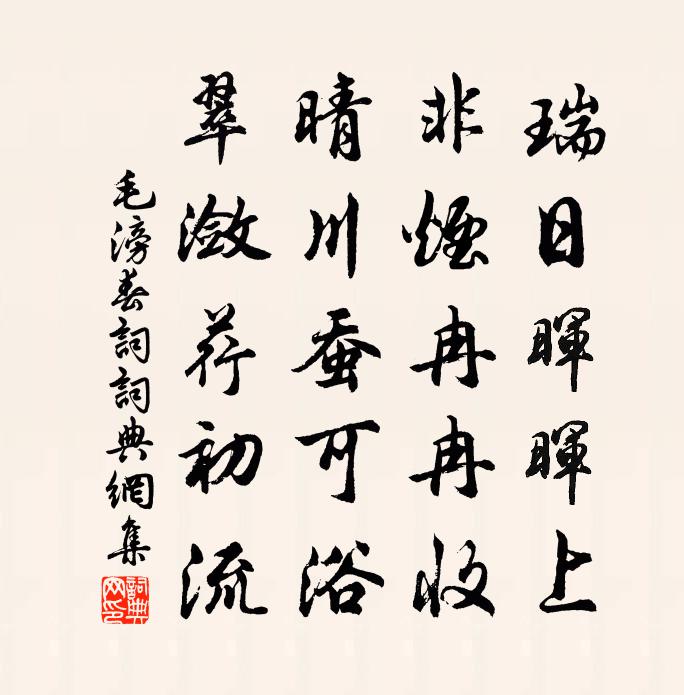 瑞日暉暉上
非煙冉冉收
晴川蚕可浴
翠瀲荇初流
毛滂春詞詞典網集
詞典網印